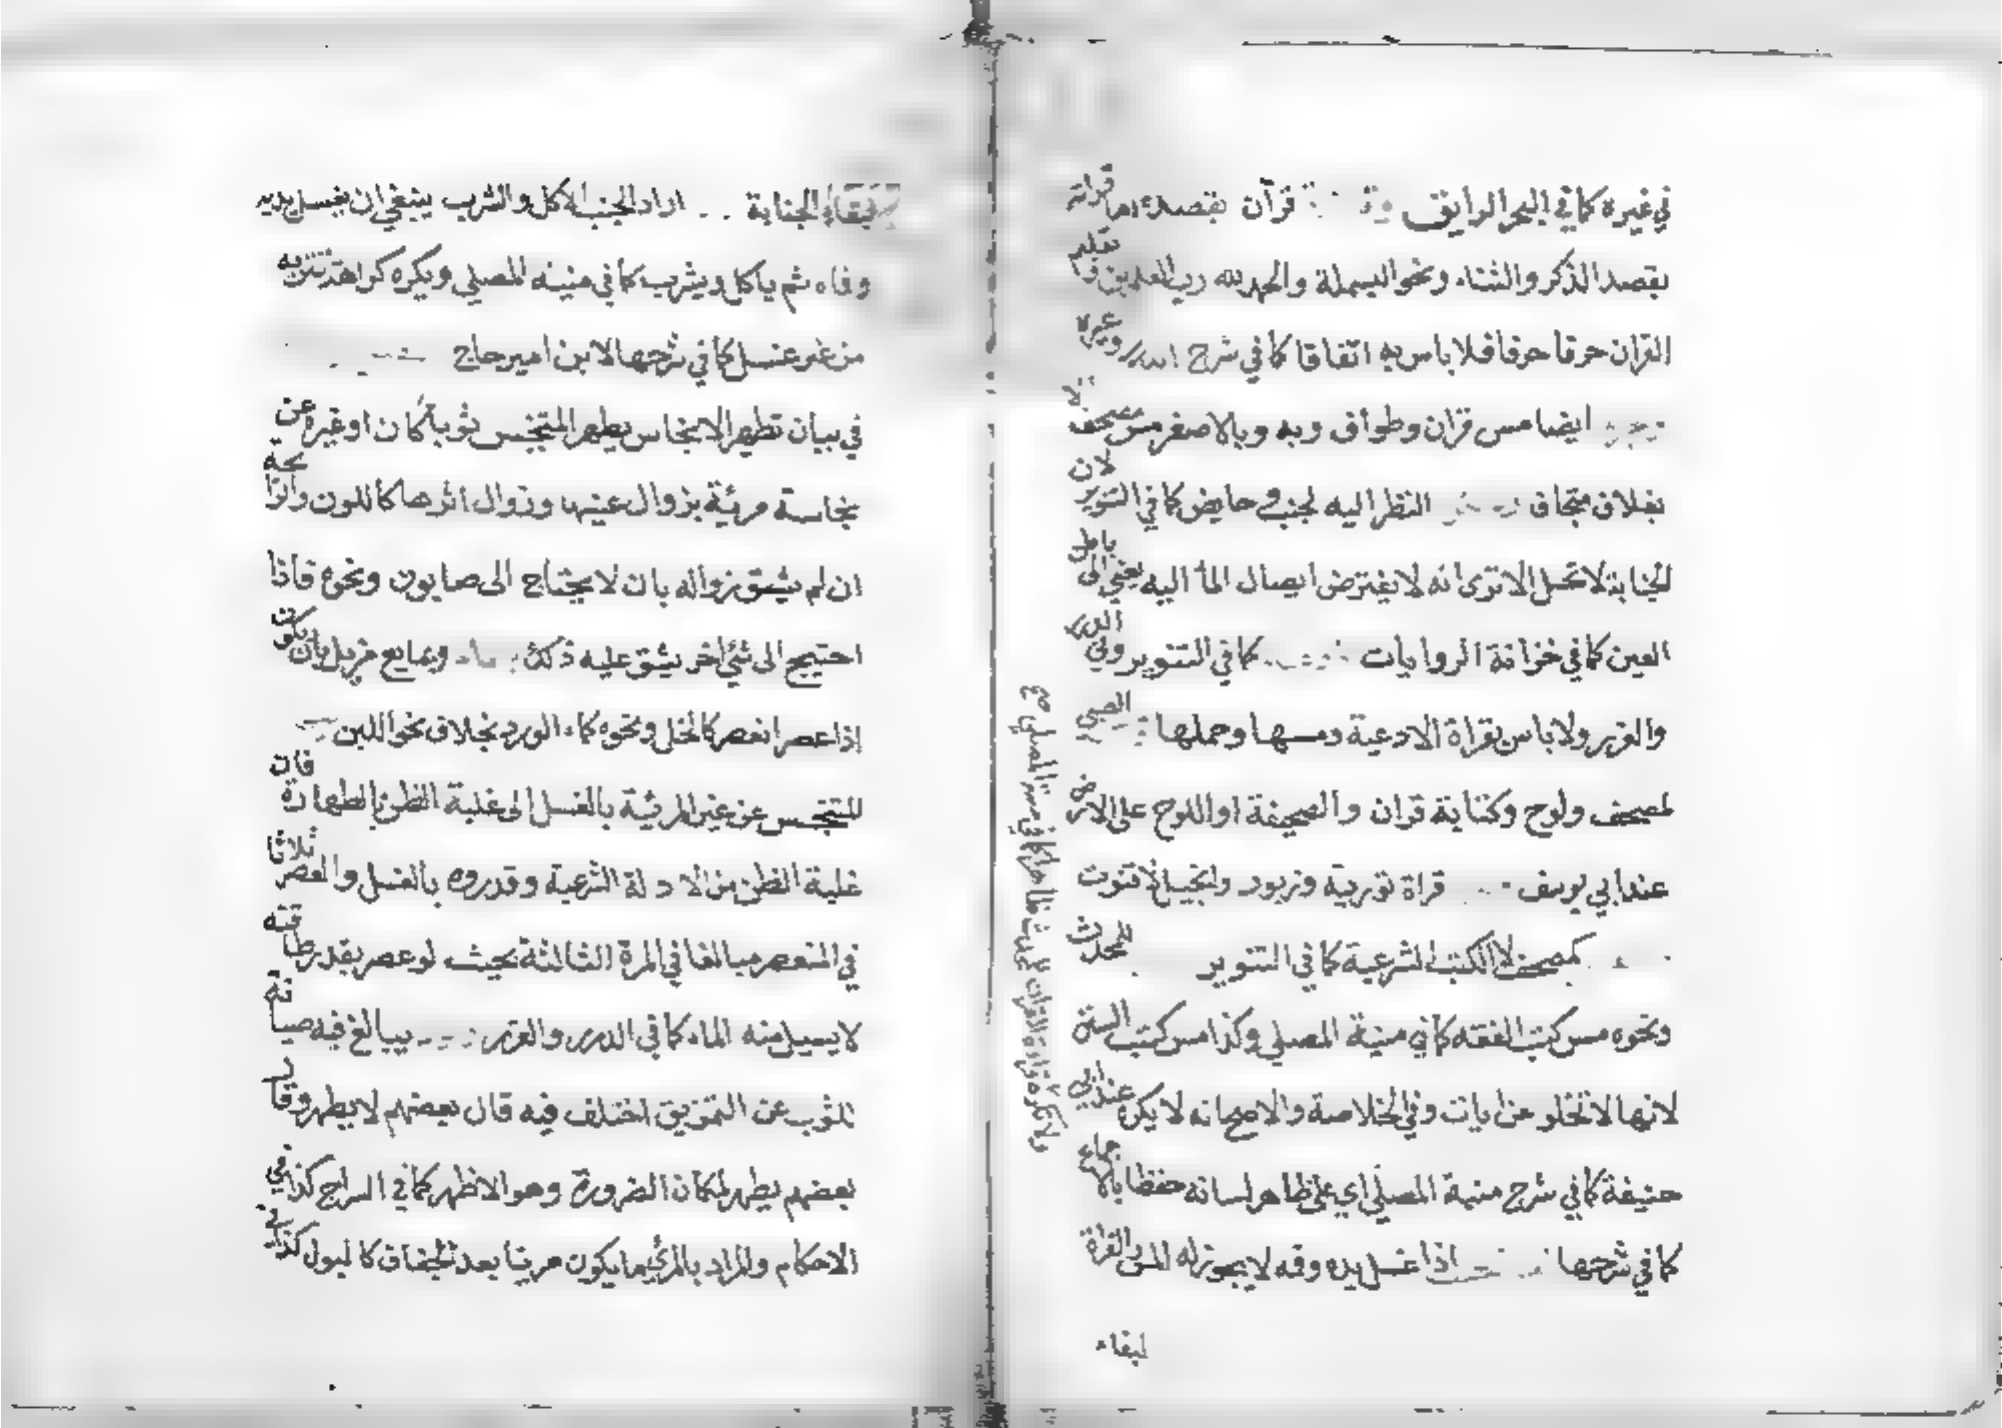 في غيره كما في البحر الرايق قرآن بقصده اما قراته
بقصد الذكر والثناء ونحو البسملة والحمد لله رب العلمين وتعليم
القران حرفا حرفا فلا باس به اتفاقا كما في شرح وغيره
ايضا مس قران وطواف وبه وبالاصغر مس مصحف الا
بغلاف متجاف النظر اليه لجنب وحايض كما في التنوير لان
الجنابة لا تحل الا ترى انه لا يفترض ايصال الماء اليه يعني الى باطن
العين كما في خزانة الروايات كما في التنوير وفي الدرر
والغرر ولا باس بقراة الادعية ومسها وحملها الصبي
لمصحف ولوح وكتابة قران والصحيفة او اللوح على الارض
عند ابي يوسف قراة تورية وزبور وانجيل لا قنوت
كمصحف لا الكتب الشرعية كما في التنوير للمحدث
ونحوه مس كتب الفقه كما في منية المصلي وكذا مس كتب السنن
لانها لا تخلو عن ايات وفي الخلاصة والاصح انه لا يكره عند ابي
حنيفة كما في شرح منية المصلي اي على ظاهر لسانه حفظا بالاجماع
كما في شرحها اذا غسل يده وفمه لا يجوز له المس والقراة
لبقاء
ولا تكره قراءة القران للمحدث ظاهرا كما في منية المصلي صح
لبقاء الجنابة اراد الجنب الاكل والشرب ينبغي ان يغسل يديه
وفاه ثم ياكل ويشرب كما في منية المصلي ويكره كراهة تنزيه
من غير غسل كما في شرحها لابن امير حاج
في بيان تطهير الانجاس يطهر المتنجس ثوبا كان او غيره عن
نجاسة مرئية بزوال عينها وزوال اثرها كاللون والرائحة
ان لم يشق زواله بان لا يحتاج الى صابون ونحوه فاذا
احتيج الى شئ اخر يشق عليه ذلك بماء وبمايع مزيل بان يكون
اذا عصر انعصر كالخل ونحوه كماء الورد بخلاف نحو اللبن
المتنجس عن غير المرئية بالغسل الى غلبة الظن بالطهارة فان
غلبة الظن من الادلة الشرعية وقدروه بالغسل والعصر ثلاثا
في المنعصر مبالغا في المرة الثالثة بحيث لو عصر بقدر طاقته
لا يسيل منه الماء كما في الدرر والغرر يبالغ فيه صيانة
للثوب عن التمزيق اختلف فيه قال بعضهم لا يطهر وقال
بعضهم يطهر لمكان الضرورة وهو الاظهر كما في السراج كذا في
الاحكام والمراد بالمرئي ما يكون مريئا بعد الجفاف كالبول كذا في